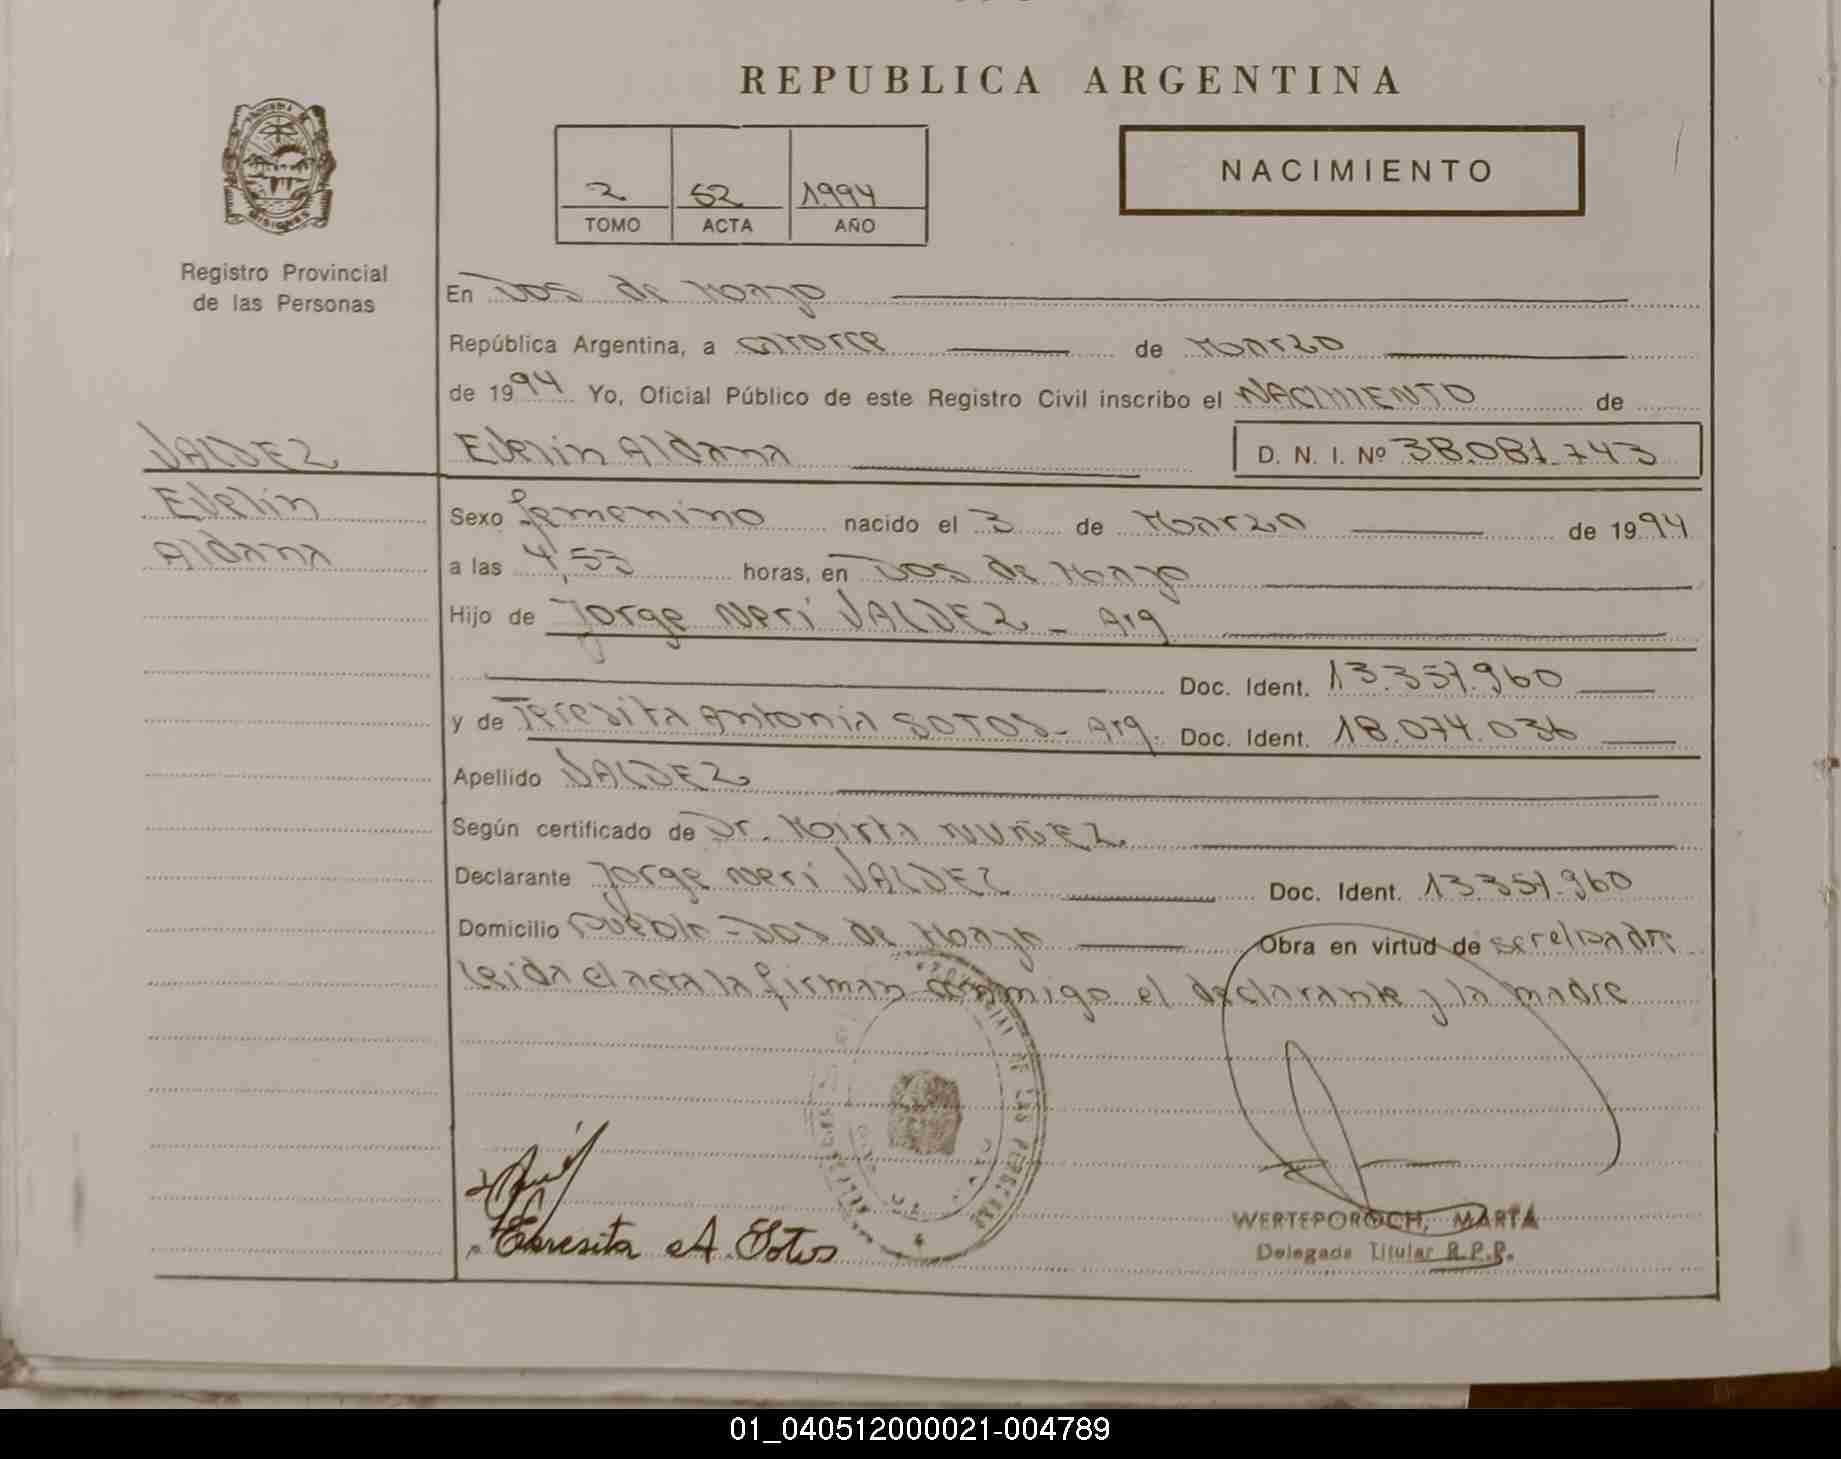 REPUBLICA ARGENTINA
NACIMIENTO
2 52 1994
TOMO ACTA AÑO
MISIONES
Registro Provincial
de las Personas
En Dos de Mayo
República Argentina, a catorce de Marzo
de 1994 Yo, Oficial Público de este Registro Civil inscribo el NACIMIENTO de
VALDEZ
Evelin Aldana D. N. I. Nº 38.081.743
Evelin
Aldana
Sexo femenino nacido el 3 de Marzo de 1994
a las 4,53 horas, en Dos de Mayo
Hijo de Jorge Neri VALDEZ - Arg
Doc. Ident. 13.357.960
y de Teresita Antonia SOTOS - Arg. Doc. Ident. 18.074.036
Apellido VALDEZ
Según certificado de Dr. Mirta NUÑEZ
Declarante Jorge Neri VALDEZ Doc. Ident. 13.357.960
Domicilio Pueblo - Dos de Mayo Obra en virtud de ser el padre
leida el acta la firman conmigo el declarante y la madre
Teresita A. Sotos
WERTEPOROCH, MARTA
Delegada Titular R.P.P.
01_040512000021-004789